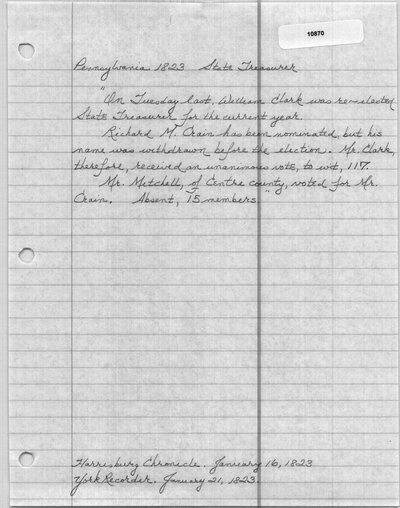 10870
Pennsylvania 1823 State Treasurer
"On Tuesday last, William Clark was re-elected
State Treasurer for the current year.
Richard M. Crain has been nominated, but his
name was withdrawn before the election. Mr. Clark,
therefore, received an unanimous vote, to wit, 117.
Mr. Metchell, of Centre county, voted for Mr.
Crain. Absent, 15 members."
Harrisburg Chronicle. January 16, 1823
York Recorder. January 21, 1823.